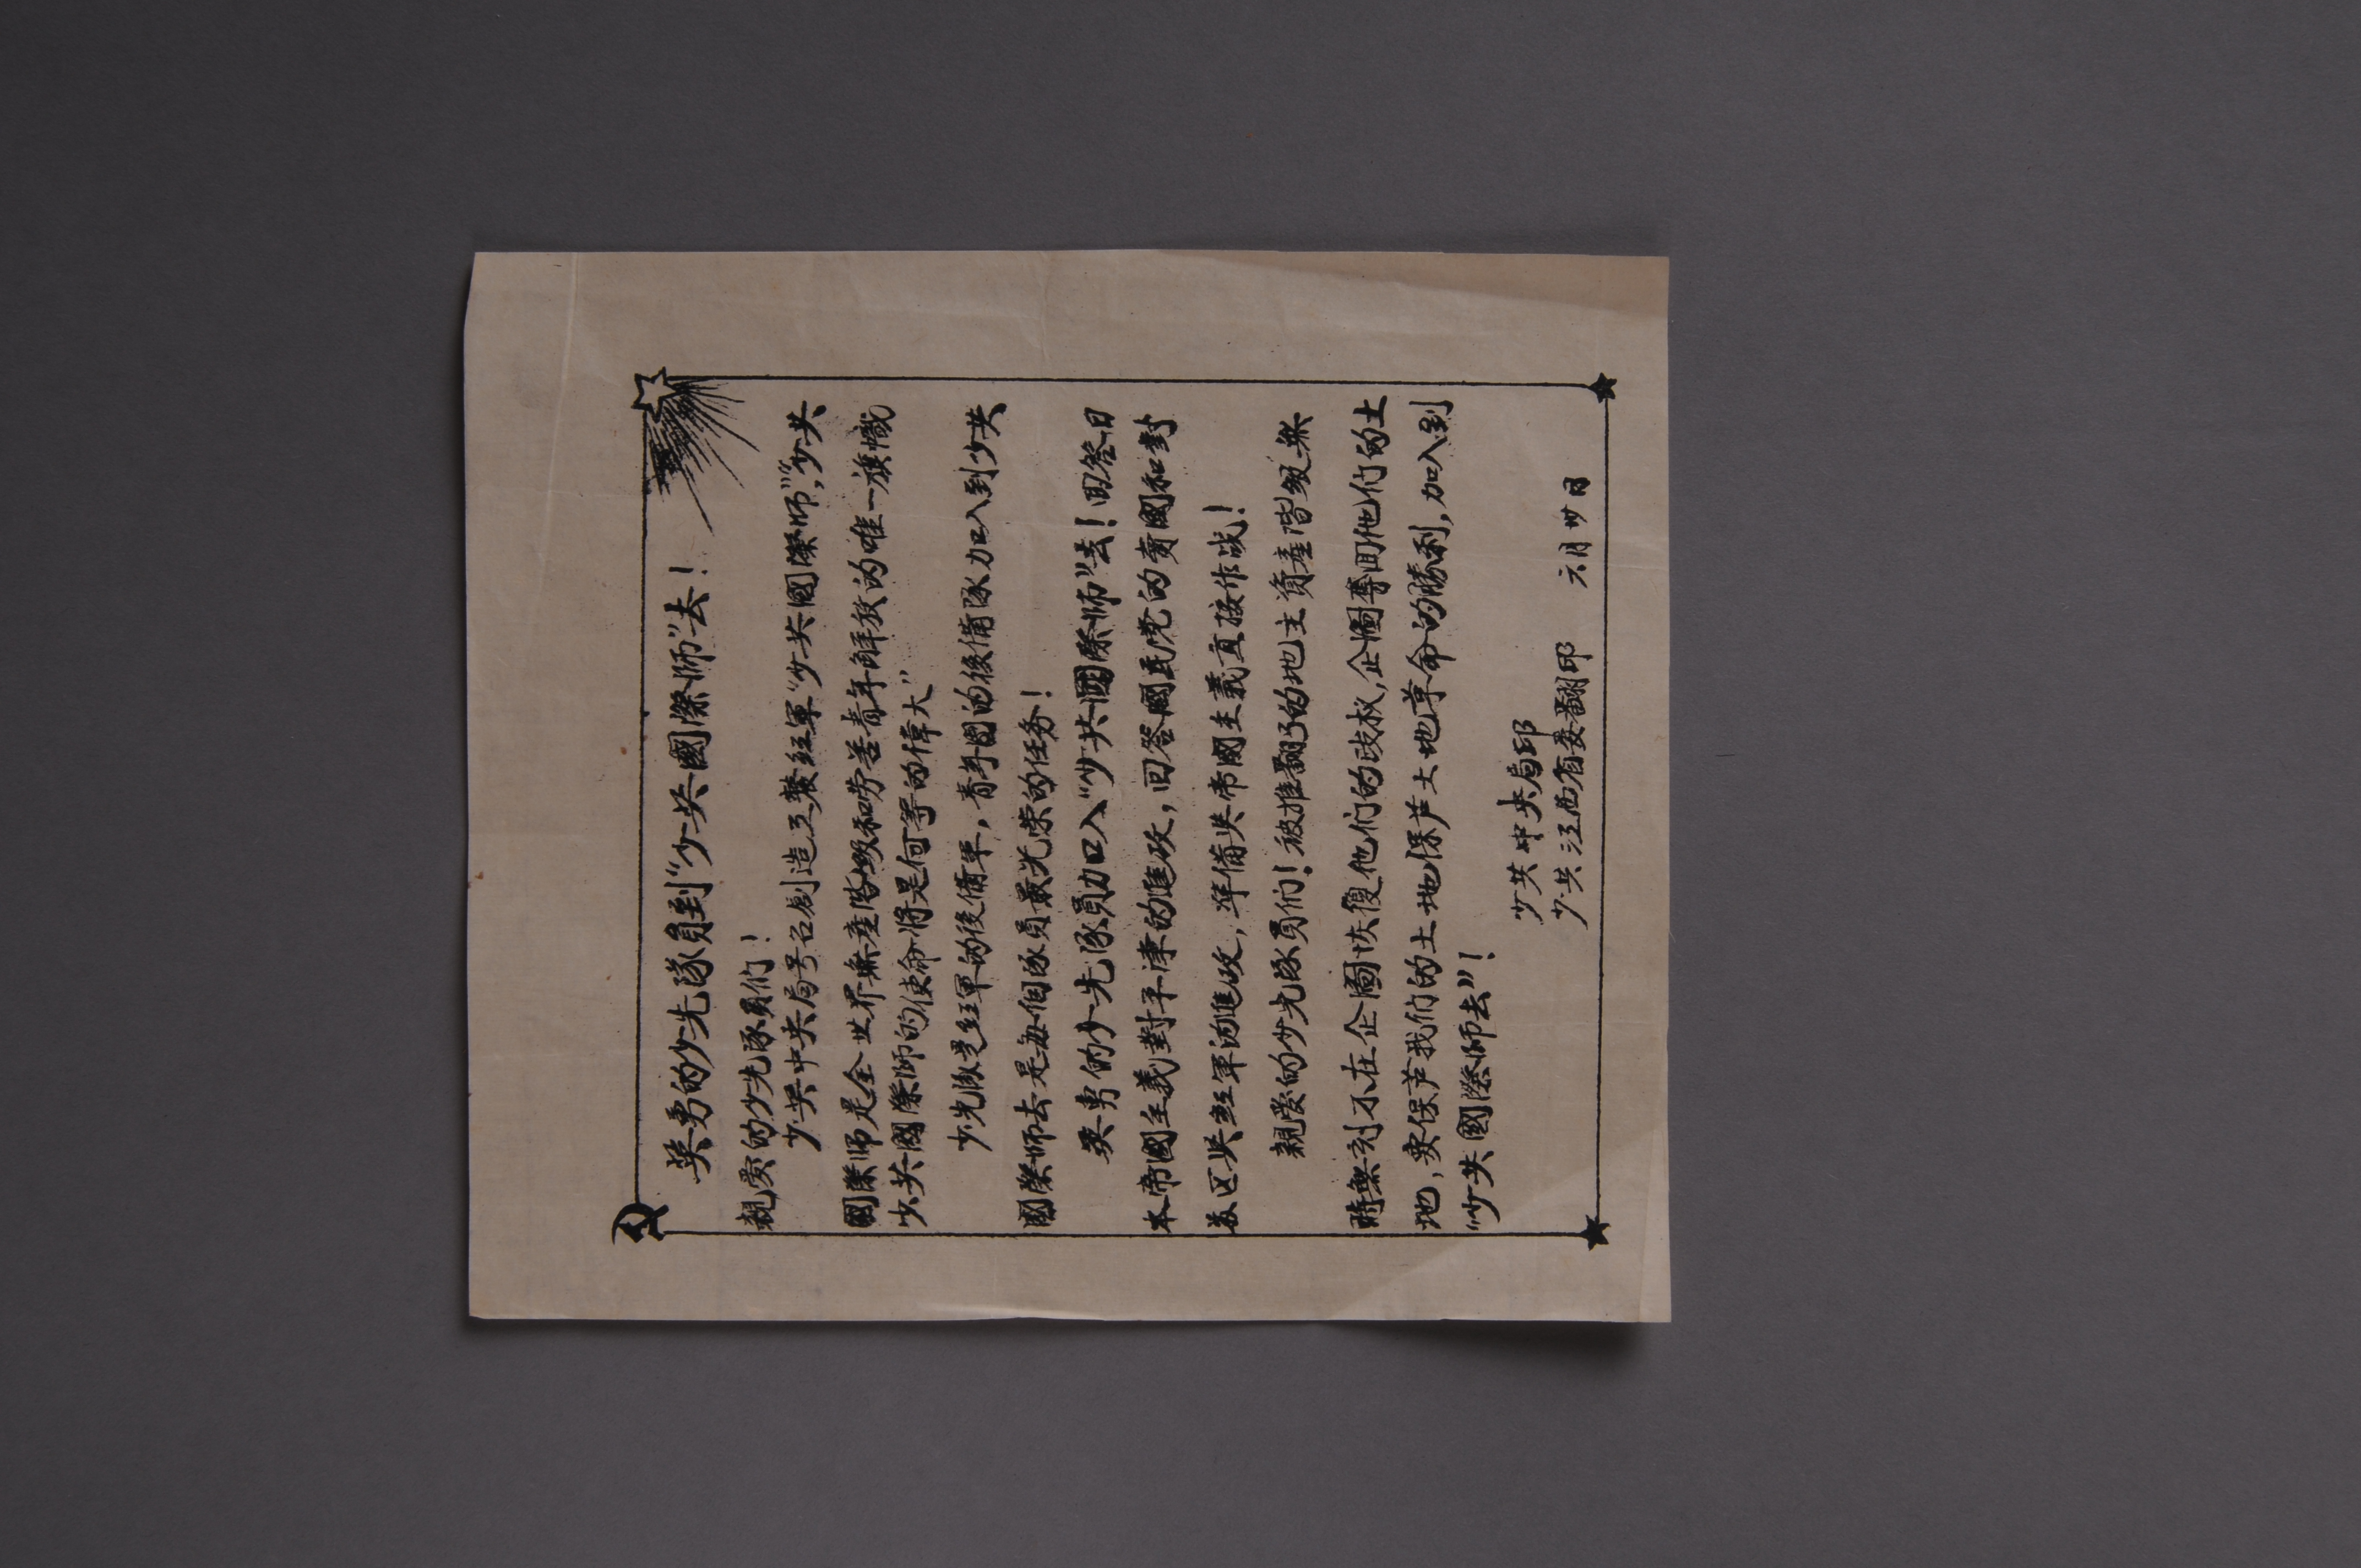 英勇的少先隊員到“少共國際師”去！
親愛的少先隊員們！
少共中央局号召創造工農红軍“少共國際師”，“少共
國際师是全世界無產階級和劳苦青年解放的唯一旗幟
少共國際師的使命將是何等的偉大”
少先隊是红軍的後備軍，青年團的後備隊加入到少共
國際师去是每個隊員最光荣的任务！
英勇的少先隊員加入“少共國際师”去！回答日
本帝國主義對平津的進攻，回答國民党的賣國和對
苏区与红軍的進攻，準備与帝國主義直接作战！
親愛的少先隊員们！被推翻了的地主資產階級無
時無刻不在企圖恢復他们的政权，企圖奪回他们的土
地，要保芦我们的土地保芦土地革命的勝利，加入到
“少共國際師去”！
少共中央局印
少共江西省委翻印 六月廿日